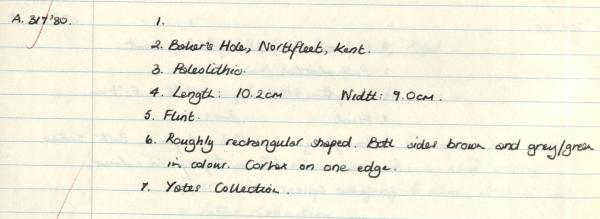 A. 317'80.
1.
2. Baker's Hole, Northfleet, Kent.
3. Paleolithic.
4. Length: 10.2cm Width: 9.0cm.
5. Flint.
6. Roughly rectangular shaped. Both sides brown and grey/green
in colour. Cortex on one edge.
7. Yates Collection.